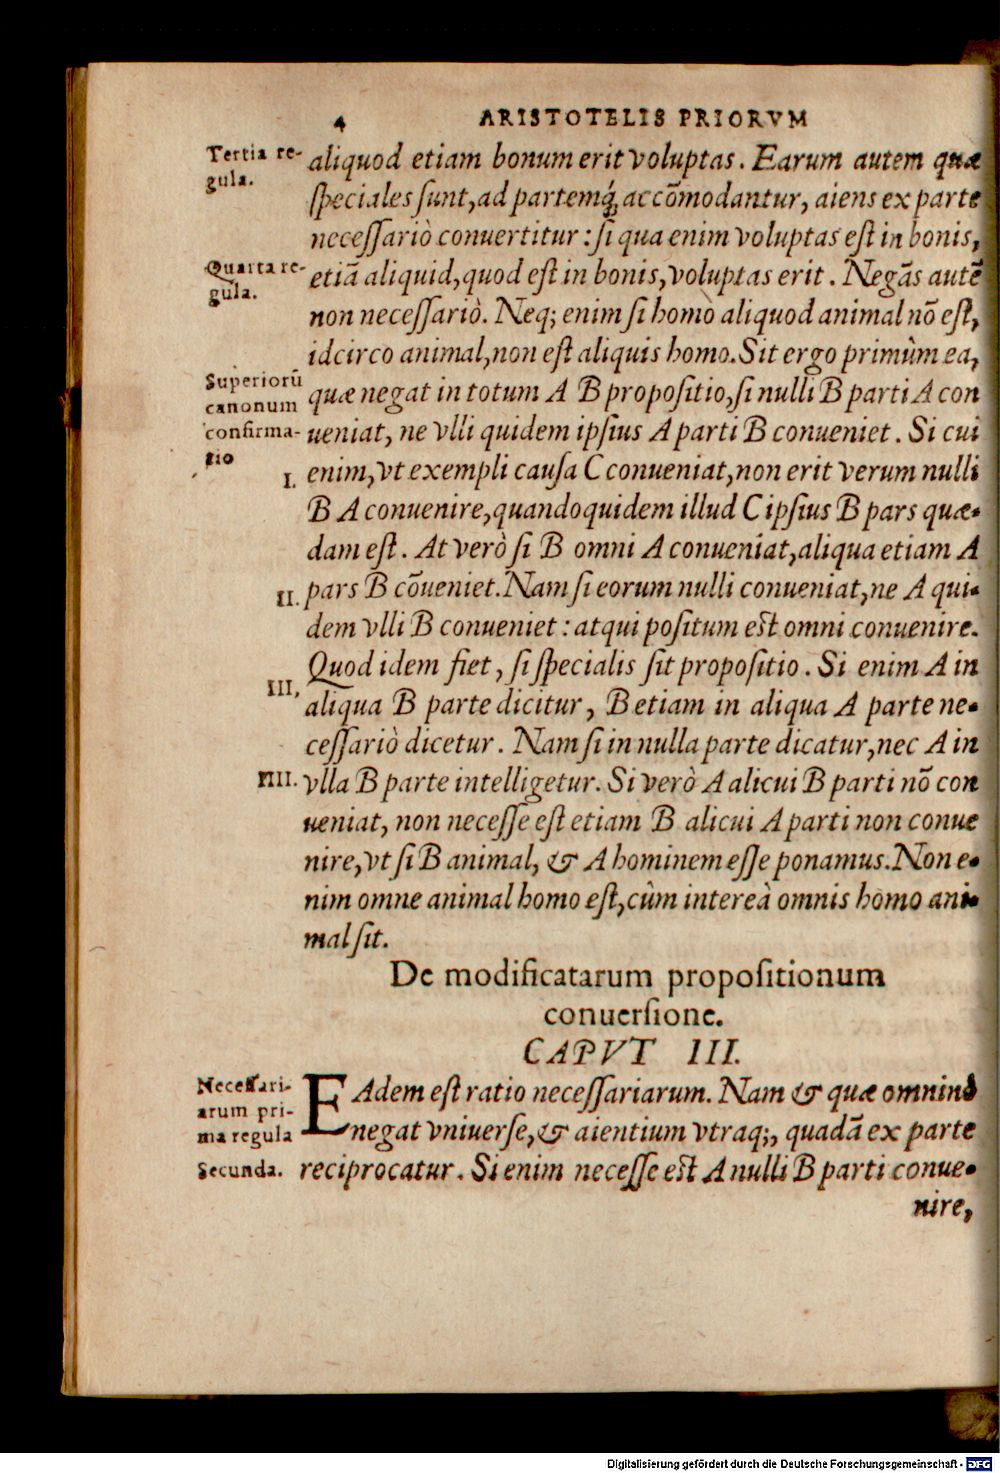 4 ARISTOTELIS PRIORVM
Tertia re-
gula.
aliquod etiam bonum erit voluptas. Earum autem quæ
ſpeciales ſunt, ad partemq́; accõmodantur, aiens ex parte
neceſſariò conuertitur: ſi qua enim voluptas eſt in bonis,
Quarta re-
gula.
etiã aliquid, quod eſt in bonis, voluptas erit. Negãs autẽ
non neceſſariò. Neq; enim ſi homo aliquod animal nõ eſt,
idcirco animal, non eſt aliquis homo. Sit ergo primùm ea,
Superiorũ
canonum
confirma-
tio
quæ negat in totum A B propoſitio, ſi nulli B parti A con
ueniat, ne vlli quidem ipſius A parti B conueniet. Si cui
I.
enim, vt exempli cauſa C conueniat, non erit verum nulli
B A conuenire, quandoquidem illud C ipſius B pars quæ-
dam eſt. At verò ſi B omni A conueniat, aliqua etiam A
II.
pars B cõueniet. Nam ſi eorum nulli conueniat, ne A qui-
dem vlli B conueniet: atqui poſitum eſt omni conuenire.
Quod idem fiet, ſi ſpecialis ſit propoſitio. Si enim A in
III,
aliqua B parte dicitur, B etiam in aliqua A parte ne-
ceſſariò dicetur. Nam ſi in nulla parte dicatur, nec A in
IIII.
vlla B parte intelligetur. Si verò A alicui B parti nõ con
ueniat, non neceſſe eſt etiam B alicui A parti non conue
nire, vt ſi B animal, & A hominem eſſe ponamus. Non e-
nim omne animal homo eſt, cùm intereà omnis homo ani-
mal ſit.
De modificatarum propoſitionum
conuerſione.
CAPVT III.
Neceſſari-
arum pri-
ma regula
EAdem eſt ratio neceſſariarum. Nam & quæ omninò
negat vniuerſe, & aientium vtraq;, quadã ex parte
Secunda.
reciprocatur. Si enim neceſſe eſt A nulli B parti conue-
nire,
Digitalisierung gefördert durch die Deutsche Forschungsgemeinschaft - DFG